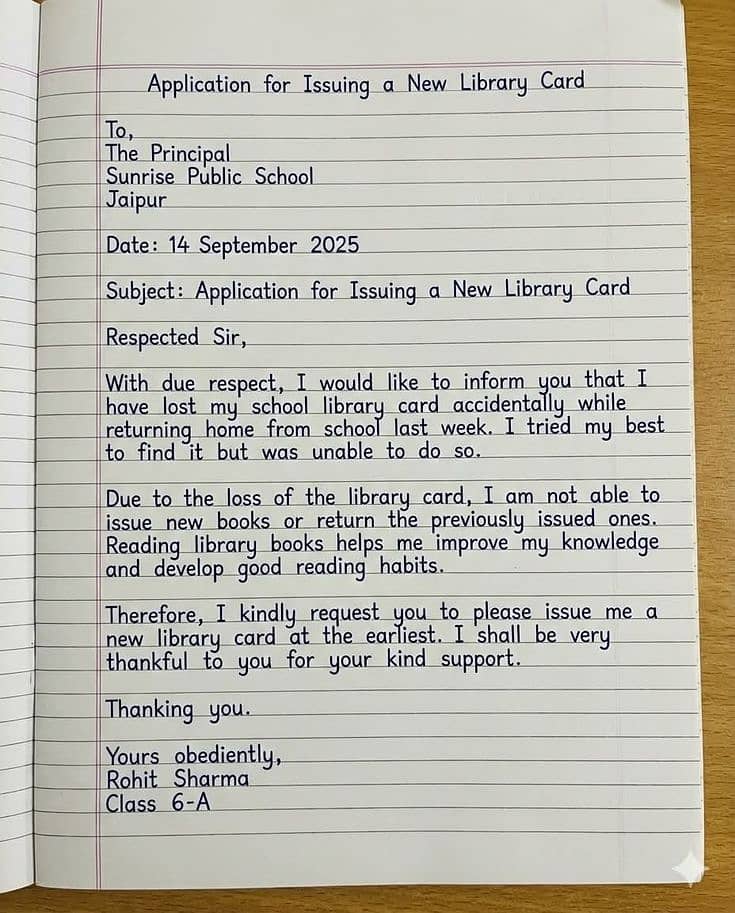 Application for Issuing a New Library Card
To,
The Principal
Sunrise Public School
Jaipur
Date: 14 September 2025
Subject: Application for Issuing a New Library Card
Respected Sir,
With due respect, I would like to inform you that I
have lost my school library card accidentally while
returning home from school last week. I tried my best
to find it but was unable to do so.
Due to the loss of the library card, I am not able to
issue new books or return the previously issued ones.
Reading library books helps me improve my knowledge
and develop good reading habits.
Therefore, I kindly request you to please issue me a
new library card at the earliest. I shall be very
thankful to you for your kind support.
Thanking you.
Yours obediently,
Rohit Sharma
Class 6-A